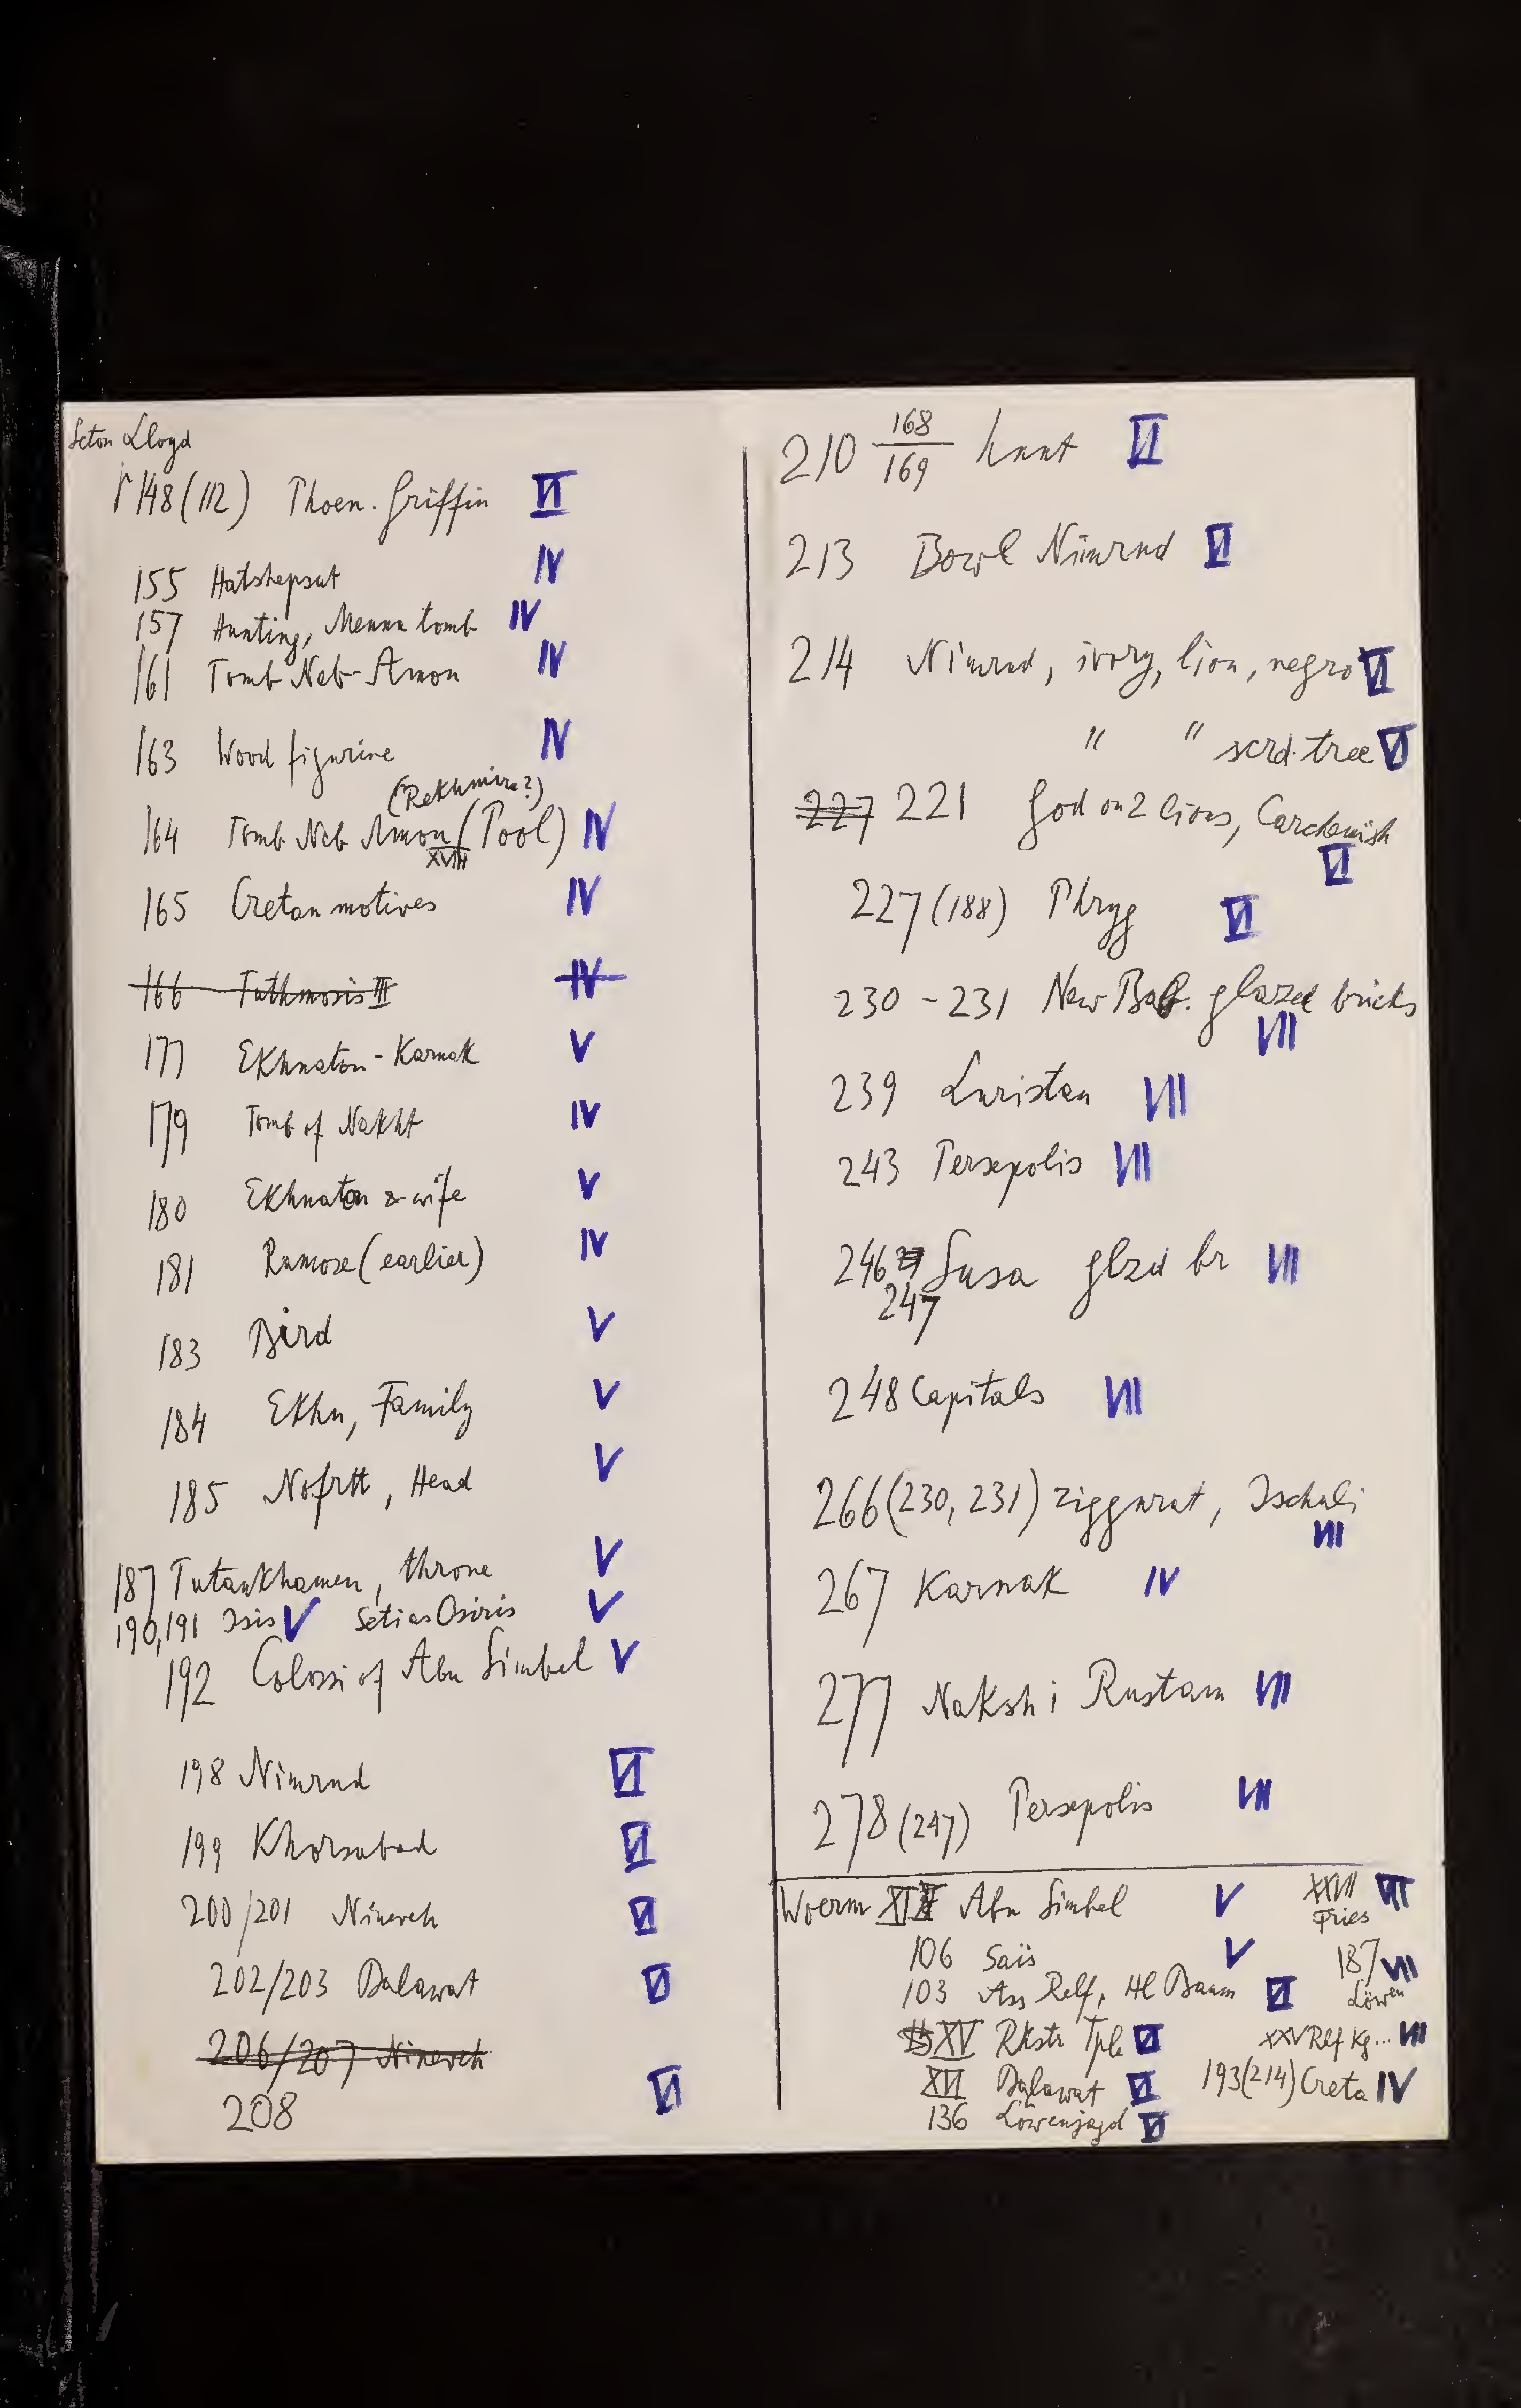 Seton Lloyd
148 (112) Phoen. Griffin VI
155 Hatshepsut IV
157 Hunting, Menna tomb IV
161 Tomb Neb-Amon IV
163 Wood figurine IV
(Rekhmire?)
164 Tomb Neb Amon (Pool) IV
XVIII
165 Cretan motives IV
166 Tuthmosis III IV
177 Ekhnaton - Karnak V
179 Tomb of Nakht IV
180 Ekhnaton & wife V
181 Ramose (earlier) IV
183 Bird V
184 Ekhn, Family V
185 Nofrtt, Head V
187 Tutankhamen, throne V
190,191 Isis V Seti as Osiris V
192 Colossi of Abu Simbel V
198 Nimrud VI
199 Khorsabad VI
200/201 Nineveh VI
202/203 Balawat VI
206/207 Nineveh
208 VI
210 168/169 hunt VI
213 Bowl Nimrud VI
214 Nimrud, ivory, lion, negro VI
" " scrd. tree VI
227 221 God on 2 lions, Carchemish
VI
227 (188) Phryg VI
230 - 231 New Bab. glazed bricks
VII
239 Luristan VII
243 Persepolis VII
246 Susa glzd br VII
247
248 Capitals VII
266 (230, 231) ziggurat, Ischali
VII
267 Karnak IV
277 Nakshi Rustam VII
278 (247) Persepolis VII
Woerm Abu Simbel V XXVII VII
Fries
106 Saïs V 187 VII
Löwen
103 Ass Relf, Hl Baum VI
XV Rkstr Tple VI XXV Rlf Kg... VII
XVI Balawat VI 193(214) Creta IV
136 Löwenjagd VI